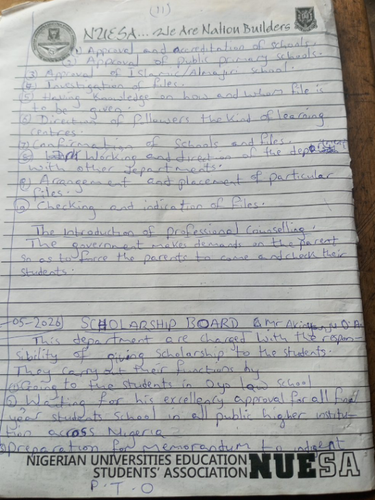 (31)
NUESA... We Are Nation Builders
1) Approval and accreditation of schools
2) Approval of public primary schools.
(3) Approval of Islamic/Almajiri school.
(4) Investigation of files.
(5) Having knowledge on how and whom file is
to be given
(6) Direction of fillowers the kind of learning
centres.
(7) Confirmation of Schools and files.
(8) Working and direction of the
with other departments.
Arrangement and placement of particular
files.
(10) Checking and indication of files.
The Introduction of professional Counselling.
The government makes demands on the parent
so as to force the parents to come and check their
students.
-05-2026) SCHOLARSHIP BOARD Mr
This department are charged with the respon-
sibility of giving Scholarship to the students.
They carry out their functions by
Going to the students in Oyo law School
Waiting for his excellency approval for all final
year students School in all public higher institu-
tion across Nigeria
Preparation for memorandum to
NIGERIAN UNIVERSITIES EDUCATION
STUDENTS' ASSOCIATION NUESA
P.T.O